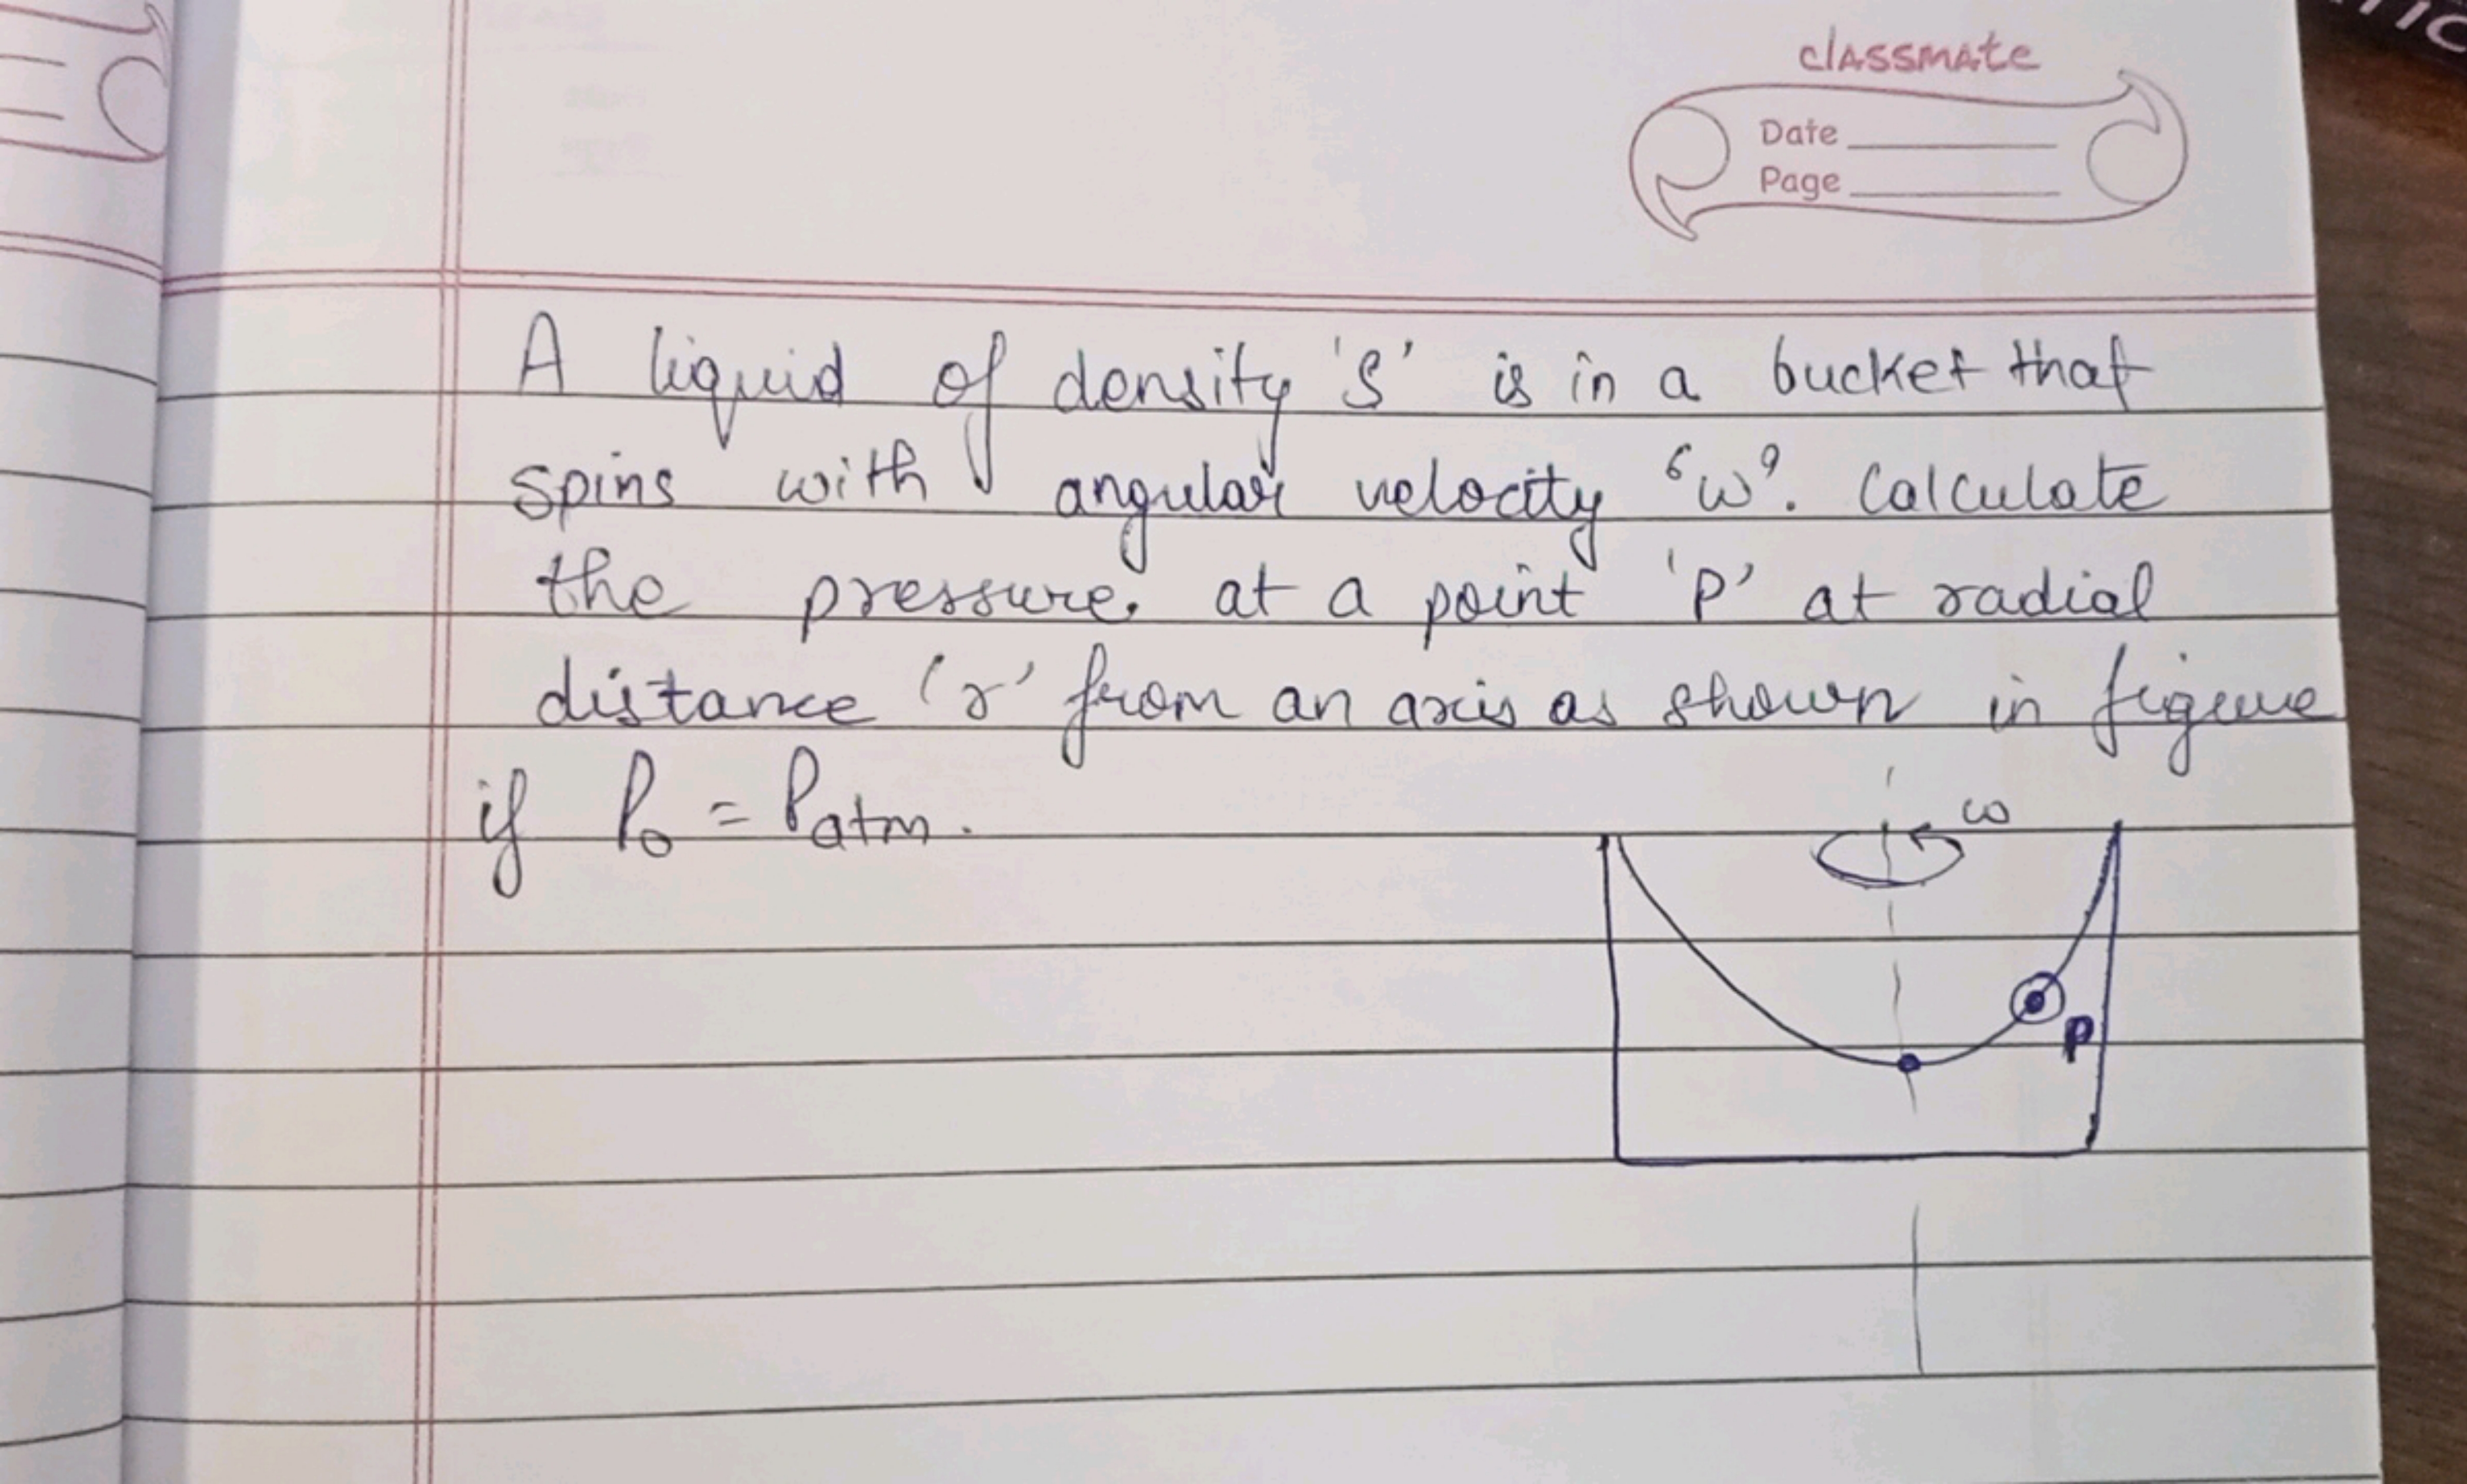 TIC
classmate
Date
Page
A liquid of density 'S' is in a bucket that
spins with angular velocity 'ω'. Calculate
the pressure. at a point 'P' at radial
distance 'r' from an axis as shown in figure
if P₀ = Patm.
ω
P